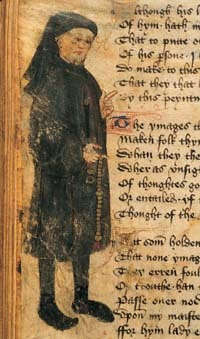 lthogh his l
Of hym hath in
That to putte ot
Of his psone · I
Do make to this
That they that h
By this peyntu
The ymages t
Maken folk thy
Whan they the
Wheras unsigh
Of thoughtes go
Or entailed · yf
Thought of the
som holden
That none ymag
They erren foul
Of trouthe han
Passe over no
Upon my maiste
ffor hym lady e